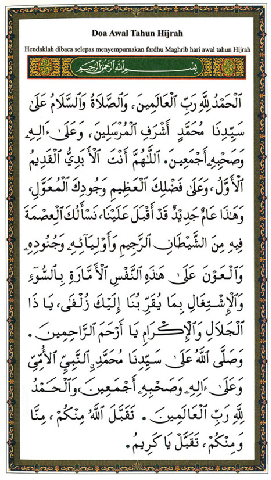 Doa Awal Tahun Hijrah
Hendaklah dibaca selepas menyempurnakan fardhu Maghrib hari awal tahun Hijrah
بِسْمِ اللهِ الرَّحْمٰنِ الرَّحِيْمِ
اَلْحَمْدُ لِلّٰهِ رَبِّ الْعَالَمِيْنَ، وَالصَّلَاةُ وَالسَّلَامُ عَلَىٰ
سَيِّدِنَا مُحَمَّدٍ أَشْرَفِ الْمُرْسَلِيْنَ، وَعَلَىٰ اٰلِهِ
وَصَحْبِهِ أَجْمَعِيْنَ. اَللّٰهُمَّ أَنْتَ الْأَبَدِيُّ الْقَدِيْمُ
الْأَوَّلُ، وَعَلَىٰ فَضْلِكَ الْعَظِيْمِ وَجُوْدِكَ الْمُعَوَّلُ،
وَهٰذَا عَامٌ جَدِيْدٌ قَدْ أَقْبَلَ عَلَيْنَا، نَسْأَلُكَ الْعِصْمَةَ
فِيْهِ مِنَ الشَّيْطَانِ الرَّجِيْمِ وَأَوْلِيَآئِهِ وَجُنُوْدِهِ
وَالْعَوْنَ عَلَىٰ هٰذِهِ النَّفْسِ الْأَمَّارَةِ بِالسُّوْءِ
وَالْإِشْتِغَالِ بِمَا يُقَرِّبُنَا إِلَيْكَ زُلْفَىٰ، يَا ذَا
الْجَلَالِ وَالْإِكْرَامِ يَا أَرْحَمَ الرَّاحِمِيْنَ.
وَصَلَّى اللهُ عَلَىٰ سَيِّدِنَا مُحَمَّدٍ النَّبِيِّ الْأُمِّيِّ
وَعَلَىٰ اٰلِهِ وَصَحْبِهِ أَجْمَعِيْنَ، وَالْحَمْدُ
لِلّٰهِ رَبِّ الْعَالَمِيْنَ. تَقَبَّلَ اللهُ مِنْكُمْ، مِنَّا
وَمِنْكُمْ، تَقَبَّلْ يَا كَرِيْمُ.